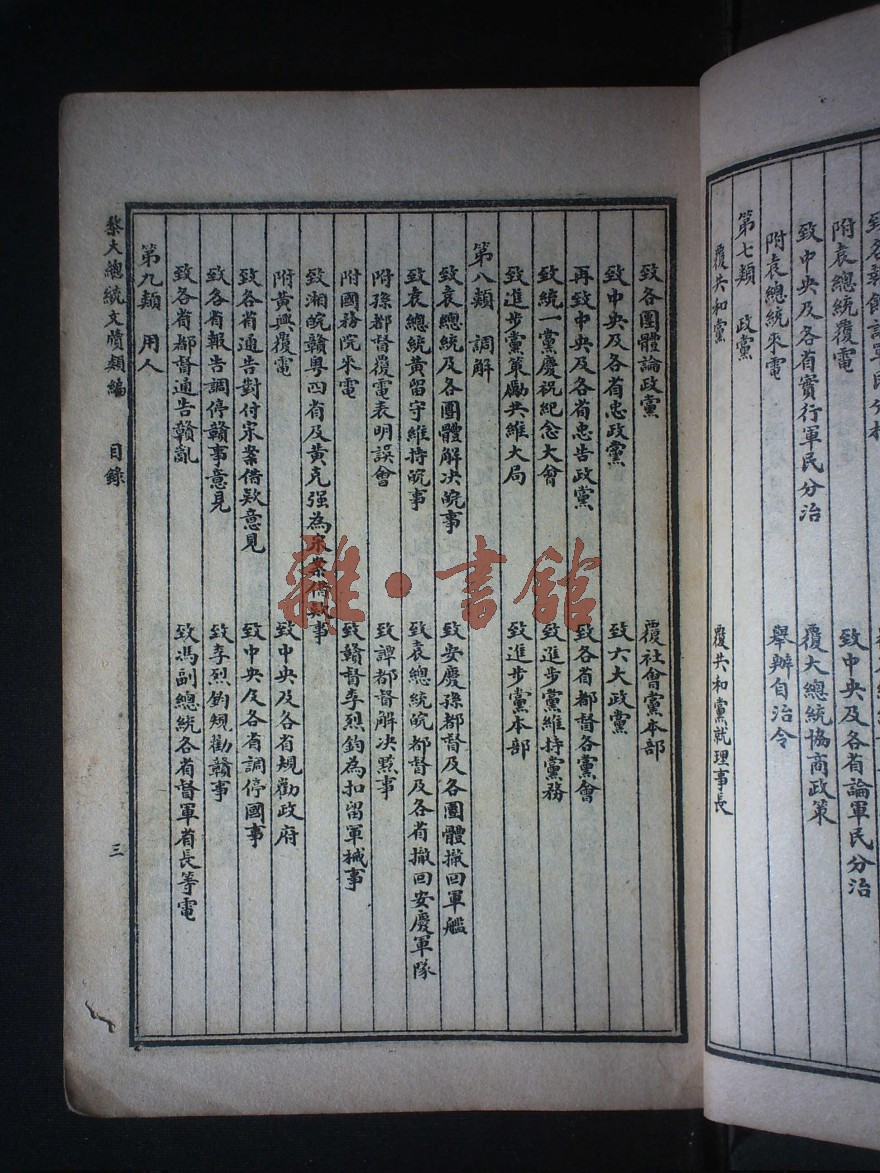 附袁總統覆電
致中央及各省論軍民分治
致中央及各省實行軍民分治
覆大總統協商政策
附袁總統來電
舉辦自治令
第七類 政黨
覆共和黨
覆共和黨就理事長
致各團體論政黨
覆社會黨本部
致中央及各省忠政黨
致六大政黨
再致中央及各省忠告政黨
致各省都督各黨會
致統一黨慶祝紀念大會
致進步黨維持黨務
致進步黨策勵共維大局
致進步黨本部
第八類 調解
致袁總統及各團體解決皖事
致安慶孫都督及各團體撤回軍艦
致袁總統黃留守維持皖事
致袁總統皖都督及各省撤回安慶軍隊
附孫都督覆電表明誤會
致譚都督解決黔事
附國務院來電
致贛督李烈鈞為扣留軍械事
致湘皖贛粵四省及黃克强為宋案借款事
附黃興覆電
致中央及各省規勸政府
致各省通告對付宋案借款意見
致中央及各省調停國事
致各省報告調停贛事意見
致李烈鈞規勸贛事
致各省都督通告贛亂
致馮副總統各省督軍省長等電
第九類 用人
黎大總統文牘類編 目錄 三
雜·書館